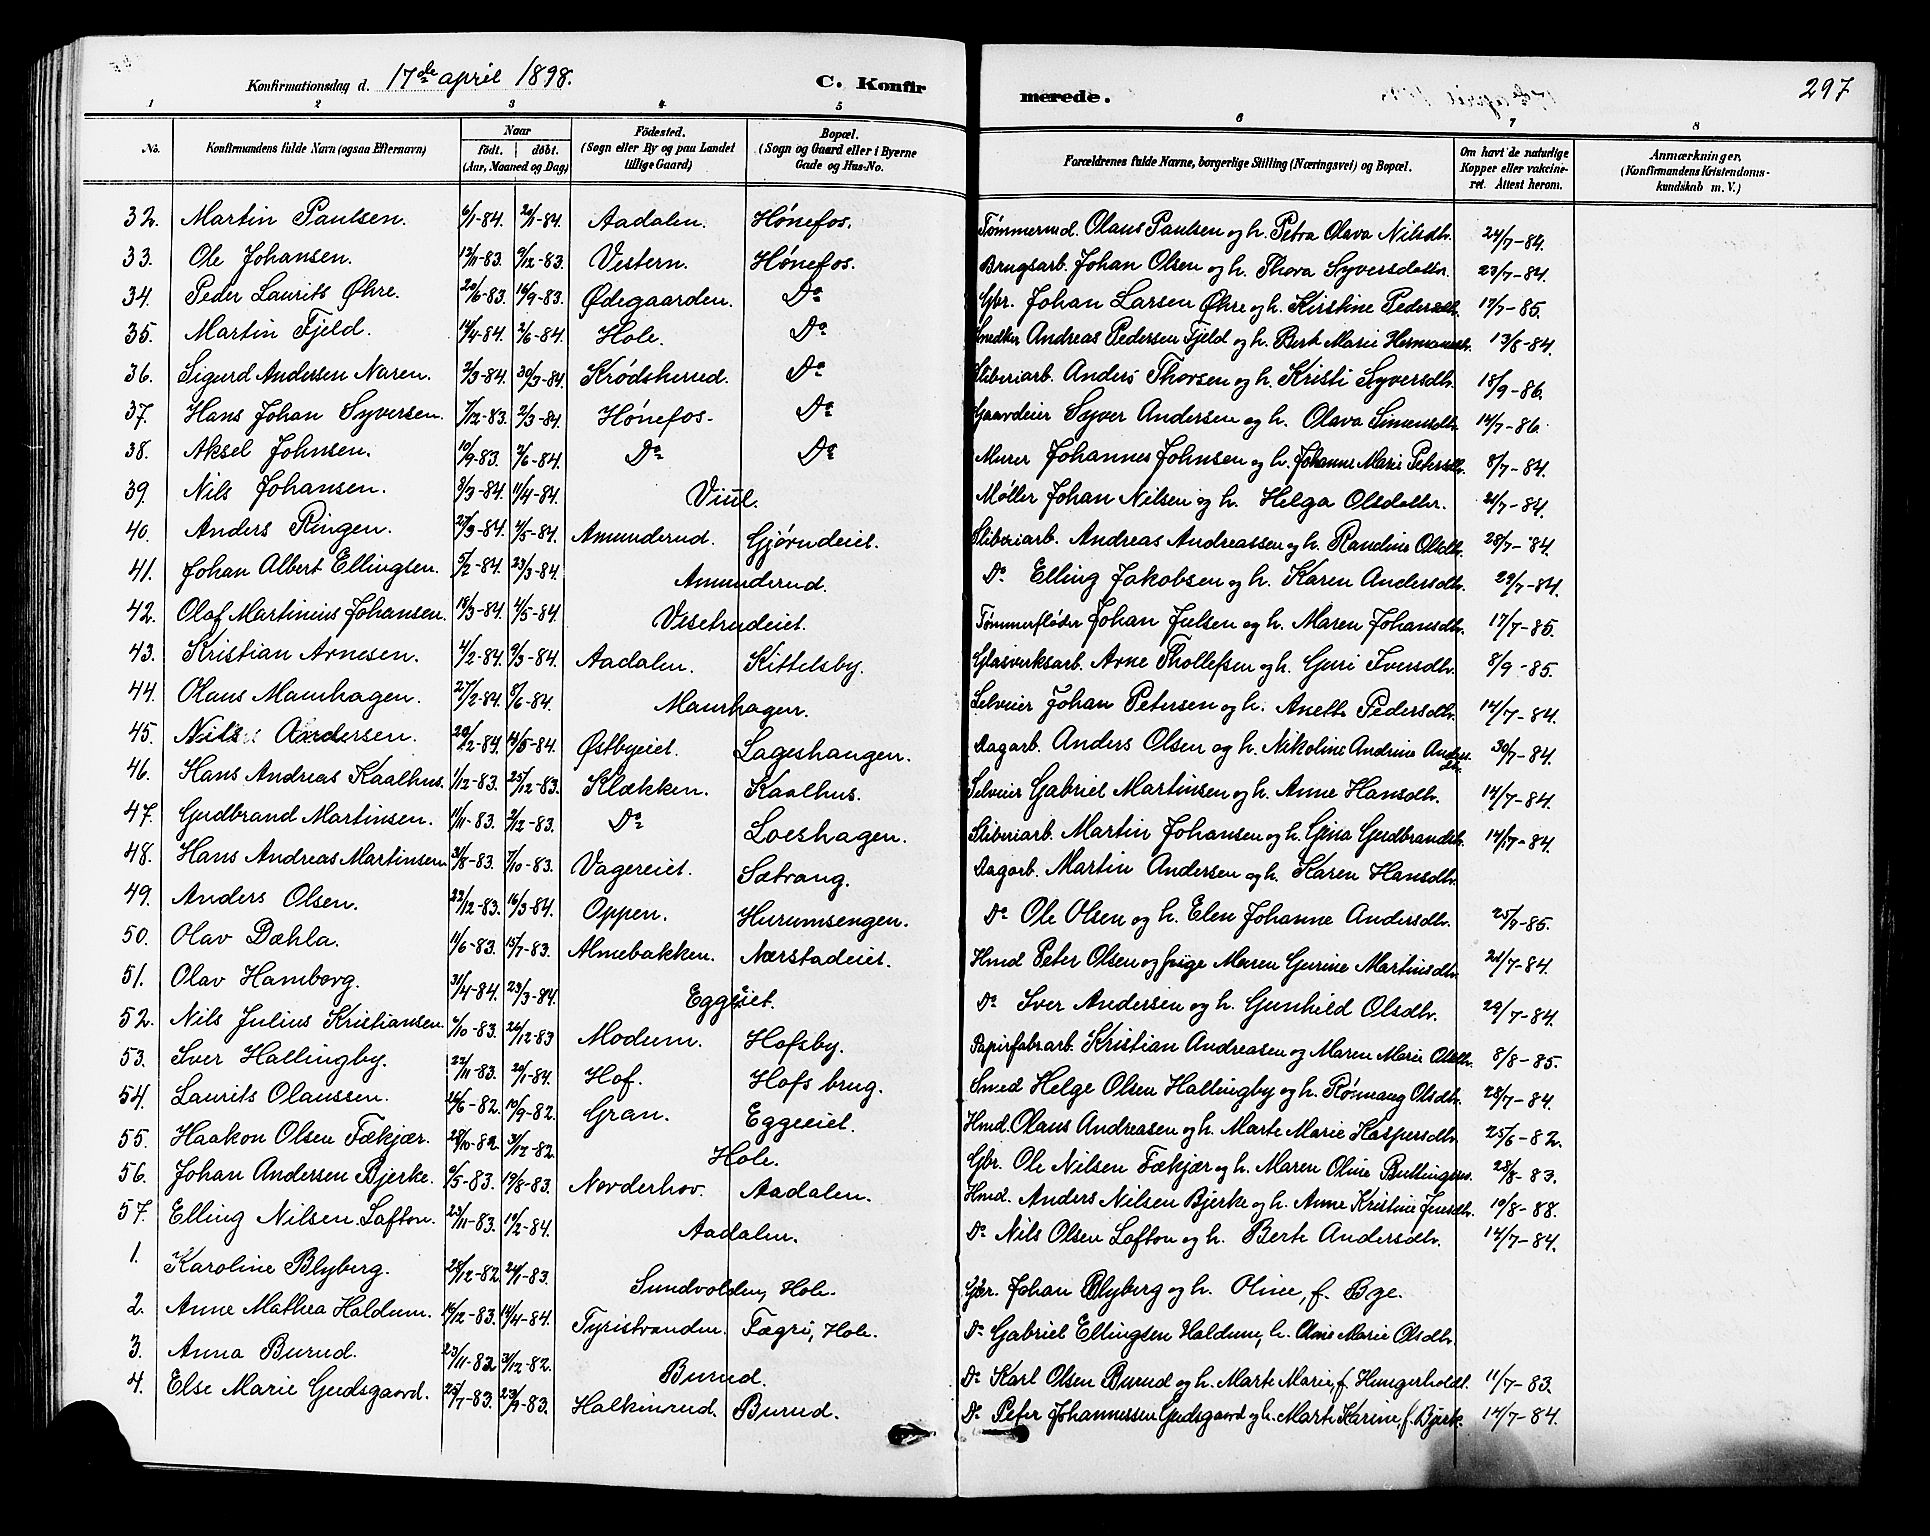 Konfirmationsdag d. 17de april 1898. C. Konfirmerede. 297
1 2 3 4 5 6 7 8
No. Konfirmandens fulde Navn (ogsaa Efternavn) Naar födt. döbt. (Aar, Maaned og Dag) Födested. (Sogn eller By og paa Landet tillige Gaard) Bopæl. (Sogn og Gaard eller i Byerne Gade og Hus-No. Forældrenes fulde Navne, borgerlige Stilling (Næringsvei) og Bopæl. Om havt de naturlige Kopper eller vakcineret. Attest herom. Anmærkninger, (Konfirmandens Kristendomskundskab m. V.)
32. Martin Paulsen. 6/1-84. 20/1-84. Aadalen. Hónefos. Tømmermd. Olaus Paulsen og h. Petra Olava Nilsdtr. 24/7-84.
33. Ole Johansen. 12/11-83. 9/12-83. Vestern. Hónefos. Brugsarb. Johan Olsen og h. Thora Syversdatter. 23/7-84.
34. Peder Laurits Økre. 20/6-83. 16/9-83. Ødegaarden. Do Gbr. Johan Larsen Økre og h. Kristine Pedersdtr. 17/7-85.
35. Martin Fjeld. 14/4-84. 2/6-84. Hole. Do Andreas Pedersen Fjeld og h. Bert Marie 13/8-84.
36. Sigurd Andersen Naren. 2/3-84. 30/3-84. Krødsherud. Do Sliberiarb. Anders Thorsen og h. Kristi Syversdtr. 18/9-86.
37. Hans Johan Syversen. 7/12-83. 2/3-84. Hónefos. Do Gaardeier Syver Andersen og h. Olava Simensdtr. 14/7-86.
38. Aksel Johnsen. 10/9-83. 2/6-84. Do Do Murer Johannes Johnsen og h. Johanne Marie Petersdtr. 8/7-84.
39. Nils Johansen. 3/3-84. 11/4-84. Viul. Møller Johan Nilsen og h. Helga Olsdatter. 21/7-84.
40. Anders Ringen. 27/3-84. 4/5-84. Amunderud. Gjørudeiet. Sliberiarb. Andreas Andreassen og h. Randine Olsdtr. 28/7-84.
41. Johan Albert Ellingsen. 5/2-84. 23/3-84. Amunderud. Do Elling Jakobsen og h. Karen Andersdtr. 29/7-84.
42. Olaf Martinius Johansen. 18/3-84. 4/5-84. Vesetrudeiet. Tømmerfløder Johan Julsen og h. Maren Johansdtr. 17/7-85.
43. Kristian Arnesen. 4/2-84. 9/3-84. Aadalen. Kittelsby. Glasverksarb. Arne Thollefsen og h. Guri Iversdtr. 8/9-85.
44. Olaus Maurhagen. 27/2-84. 8/6-84. Maurhagen. Selveier Johan Petersen og h. Anette Pedersdtr. 14/7-84.
45. Nils Andersen. 20/2-84. 14/5-84. Østbyeiet. Lageshaugen. Dagarb. Anders Olsen og h. Nikoline Andrine Andersdtr. 30/7-84.
46. Hans Andreas Kaalhus. 1/12-83. 25/12-83. Klækken. Kaalhus. Selveier Gabriel Martinsen og h. Anne Hansdtr. 14/7-84.
47. Gudbrand Martinsen. 11/11-83. 2/12-83. Do Loeshagen. Sliberiarb. Martin Johansen og h. Gina Gudbrandsdtr. 14/7-84.
48. Hans Andreas Martinsen. 31/8-83. 7/10-83. Vagereiet. Sætrang. Dagarb. Martin Andersen og h. Karen Hansdtr.
49. Anders Olsen. 22/12-83. 16/3-84. Oppen. Hurumsengen. Do Ole Olsen og h. Elen Johanne Andersdtr. 25/7-85.
50. Olav Dæhla. 11/6-83. 15/7-83. Almebakken. Nærstadeiet. Hmd Peter Olsen og pige Maren Gurine Martinsdtr. 22/7-84.
51. Olav Hamborg. 31/4-84. 23/3-84. Eggeiet. Do Iver Andersen og h. Gunhild Olsdtr. 29/7-84.
52. Nils Julius Kristiansen. 6/10-83. 26/12-83 Modum. Hofsby. Papirfabrarb. Kristian Andreasen og Maren Marie Olsdtr. 8/8-85.
53. Iver Hallingby. 22/11-83. 20/1-84. Hof. Hofs brug. Smed Helge Olsen Hallingby og h. Rónnaug Olsdtr. 28/7-84.
54. Laurits Olaussen. 26/6-82. 10/9-82. Gran. Eggeeiet. Hmd. Olaus Andreasen og h. Marte Marie Kaspersdtr. 25/6-82.
55. Haakon Olsen Fækjær. 28/10-82. 31/12-82. Hole. Gbr. Ole Nilsen Fækjær og h. Maren Oline 28/8-83.
56. Johan Andersen Bjerke. 6/5-83. 19/8-83. Norderhov. Aadalen. Hmd. Anders Nilsen Bjerke og h. Anne Kristine Jensdtr. 10/8-88.
57. Elling Nilsen Lafton. 23/11-83. 10/2-84. Aadalen. Do Nils Olsen Lafton og h. Berte Andersdtr. 14/7-84.
1. Karoline Blyberg. 28/12-82. 24/1-83. Sundvolden, Hole. Gbr. Johan Blyberg og h. Oline, f. Bye.
2. Anne Mathea Haldum. 16/12-83. 14/4-84. Tyristranden. Fægri, Hole. Do Gabriel Ellingsen Haldum, h. Oline Marie Olsdtr.
3. Anna Burud. 23/11-82 31/12-82. Burud. Do Karl Olsen Burud og h. Marte Marie, f. Hungerholdt. 11/7-83.
4. Else Marie Gudsgaard. 25/7-83. 23/9-83. Halkinrud. Burud. Do Peter Johannessen Gudsgaard og h. Marte Karine, f. Bjørk. 14/7-84.